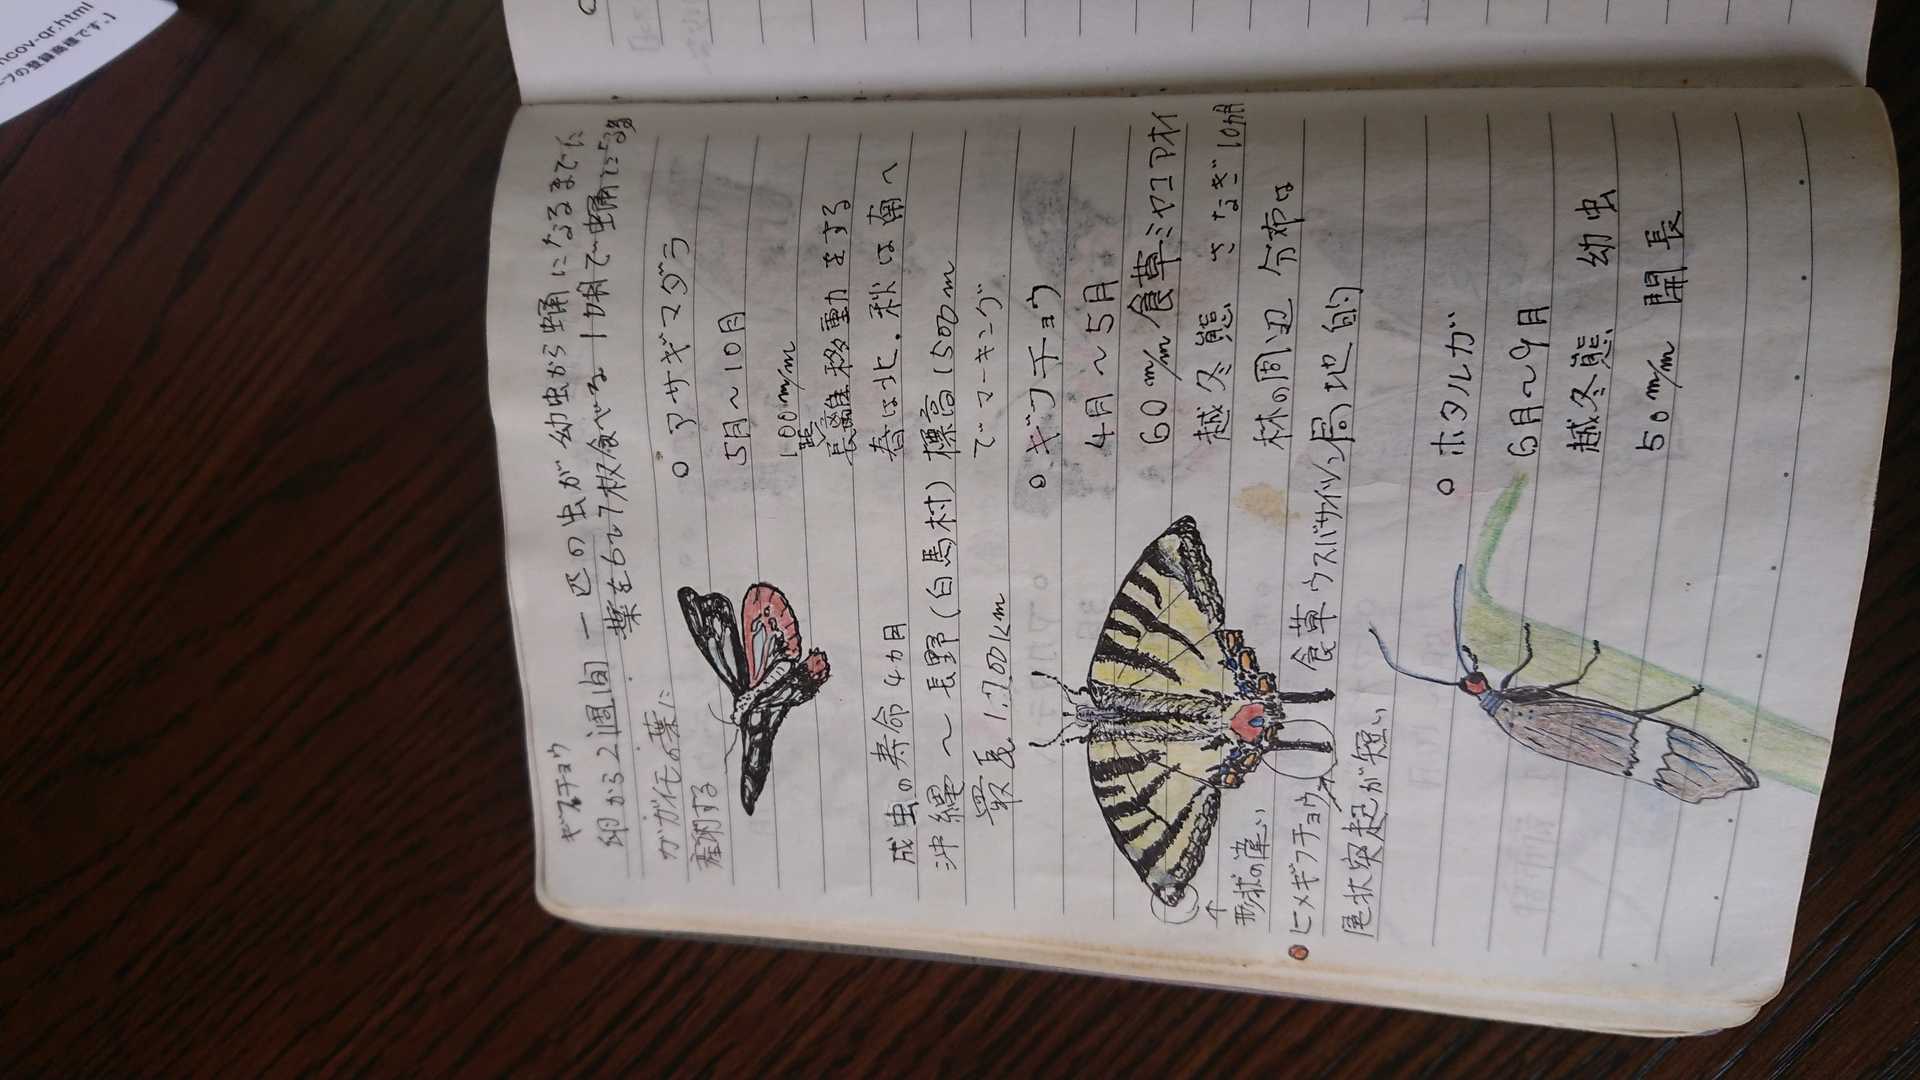 ギフチョウ
卵から2週間 一匹の虫が幼虫から蛹になるまでに
葉を6〜7枚食べる 1カ月で蛹になる
ガガイモの葉に
産卵する
○ アサギマダラ
5月〜10月
100m/m
長距離移動をする
春は北、秋は南へ
成虫の寿命4カ月
沖縄〜長野(白馬村)標高1500m
最長1,200km でマーキング
○ ギフチョウ
4月〜5月
60m/m 食草ミヤコアオイ
越冬態 さなぎ10カ月
林の周辺 分布は
局地的
↑
形状の違い
● ヒメギフチョウ 食草 ウスバサイシン
尾状突起が短い
○ ホタルガ
6月〜9月
越冬態 幼虫
50m/m 開長
ncov-qr.html
の登録商標です。)